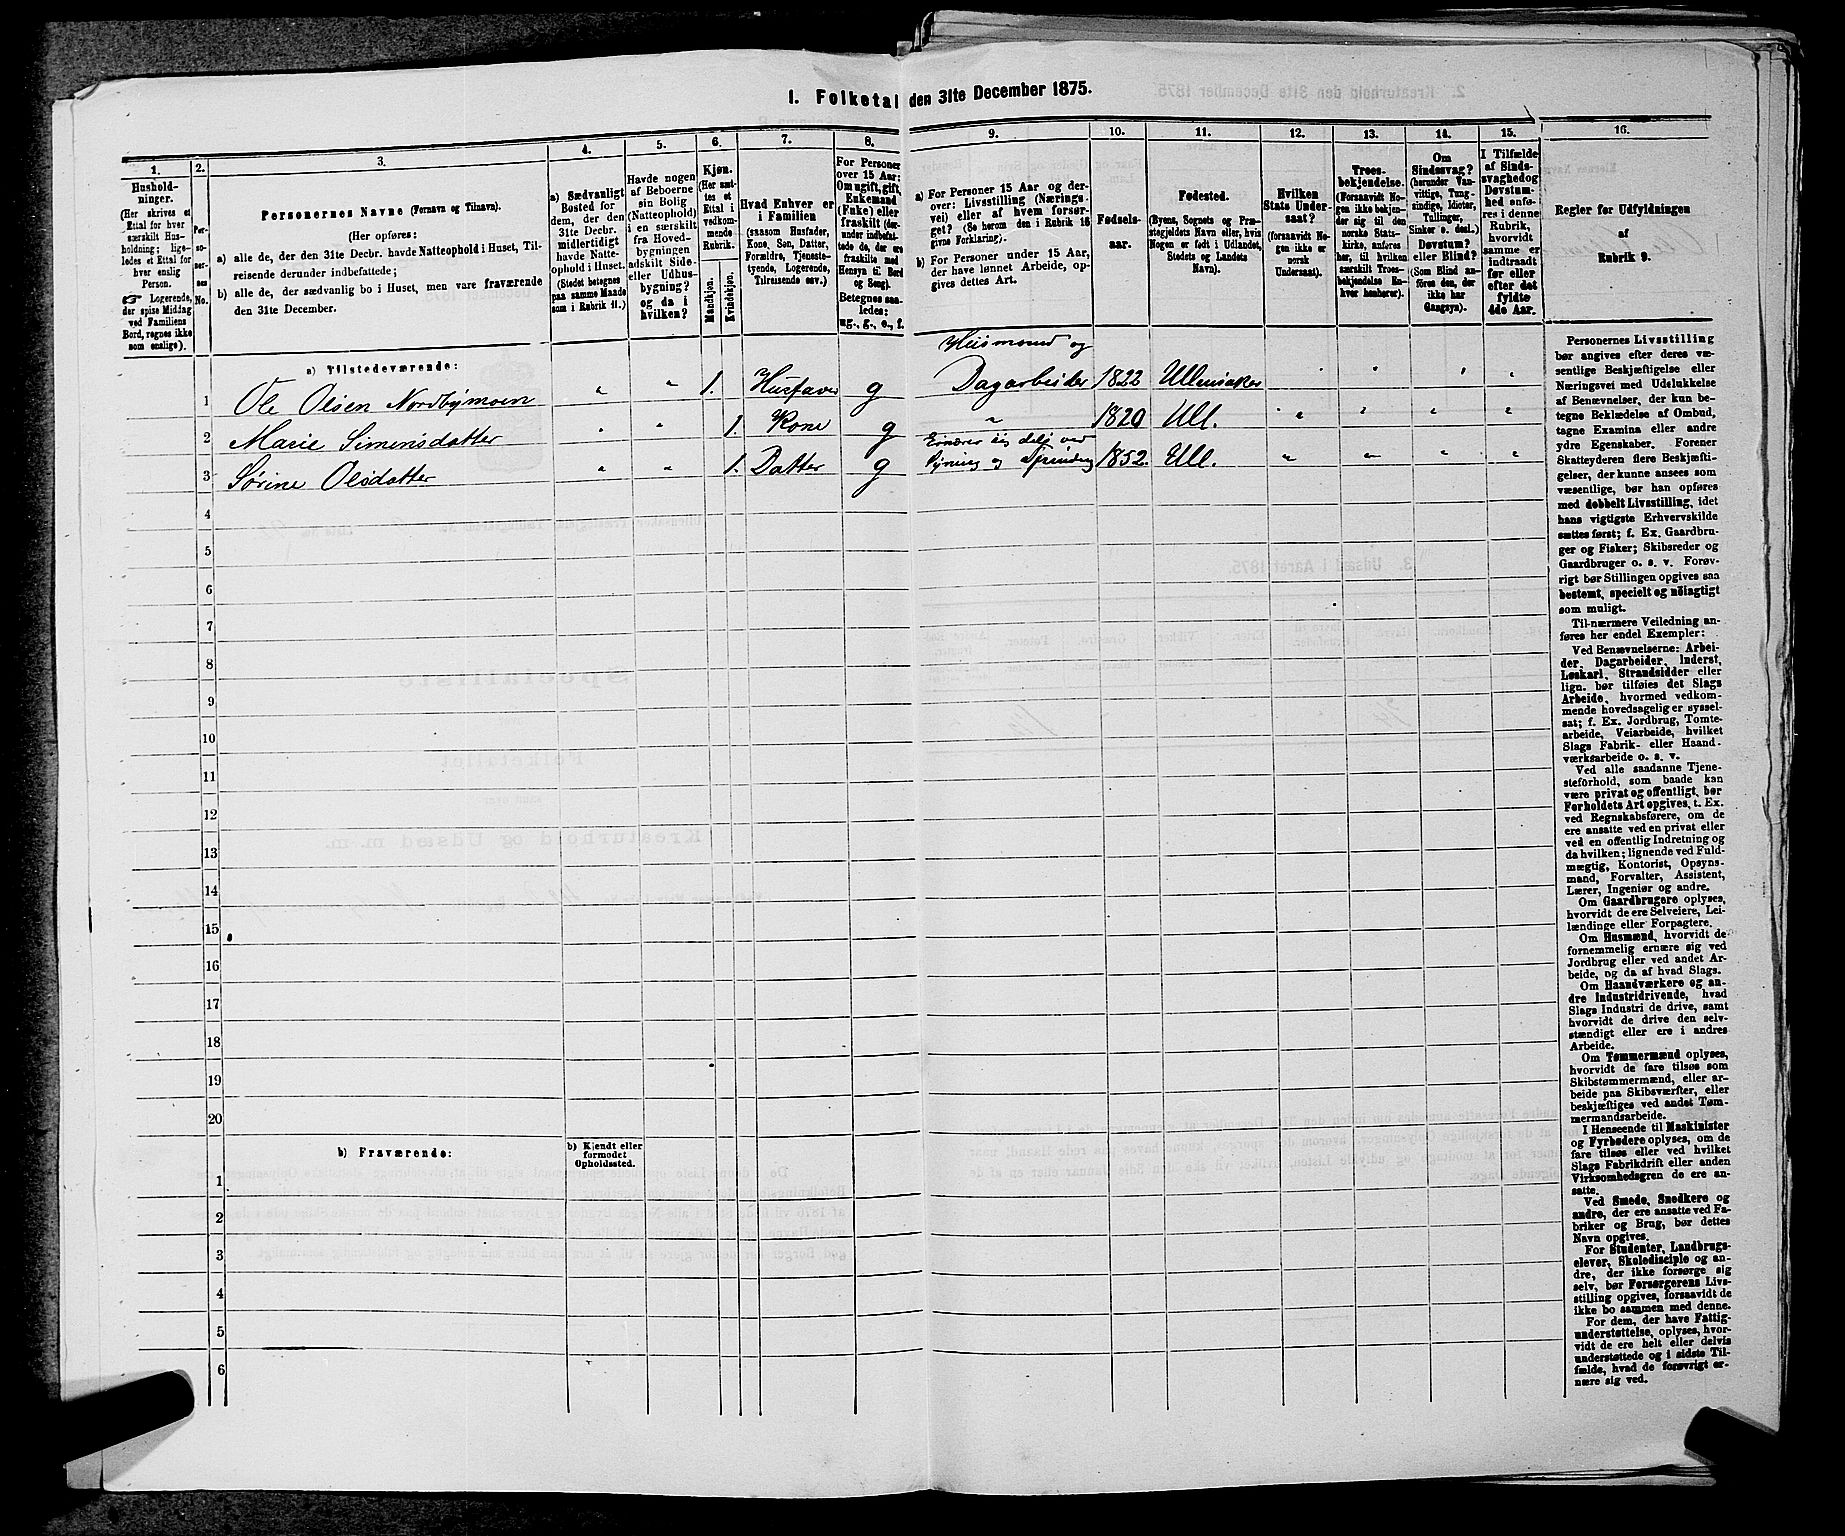 1. Folketal den 31te December 1875.
1.
Hushold-
ninger.
(Her skrives et
Ettal for hver
særskilt Hus-
holdning; lige-
ledes et Ettal for
hver enslig
Person.
☞ Logerende,
der spise Middag
ved Familiens
Bord, regnes ikke
som enslige).
2.
Per-
so-
ner-
nes
No.
3.
Personernes Navne (Fornavn og Tilnavn).
(Her opføres:
a) alle de, der den 31te Decbr. havde Natteophold i Huset, Til-
reisende derunder indbefattede;
b) alle de, der sædvanlig bo i Huset, men vare fraværende
den 31te December.
4.
a) Sædvanligt
Bosted for
dem, der den
31te Decbr.
midlertidigt
havde Natte-
ophold i Huset.
(Stedet betegnes
paa samme Maade
som i Rubrik 11.)
5.
Havde nogen
af Beboerne
sin Bolig
(Natteophold)
i en særskilt
fra Hoved-
bygningen
adskilt Side-
eller Udhus-
bygning?
og da i
hvilken?
6.
Kjøn.
(Her sæt-
tes et
Ettal i
vedkom-
mende
Rubrik.
Mandkjøn.
Kvindekjøn.
7.
Hvad Enhver er
i Familien
(saasom Husfader,
Kone, Søn, Datter,
Forældre, Tjeneste-
tyende, Logerende,
Tilreisende osv.)
8.
For Personer
over 15 Aar:
Om ugift, gift,
Enkemand
(Enke) eller
fraskilt (der-
under indbefat-
tede de, der ere
fraskilte med
Hensyn til Bord
og Seng).
Betegnes saa-
ledes:
ug., g., e., f.
9.
a) For Personer 15 Aar og der-
over: Livsstilling (Nærings-
vei) eller af hvem forsør-
get? (Se herom den i Rubrik 16
givne Forklaring).
b) For Personer under 15 Aar,
der have lønnet Arbeide, op-
gives dettes Art.
10.
Fødsels-
aar.
11.
Fødested.
(Byens, Sognets og Præ-
stegjeldets Navn eller, hvis
Nogen er født i Udlandet,
Stedets og Landets
Navn).
12.
Hvilken
Stats Under-
saat?
(forsaavidt No-
gen ikke er
norsk
Undersaat).
13.
Troes-
bekjendelse.
(Forsaavidt No-
gen ikke bekjen-
der sig til den
norske Stats-
kirke, anføres
her, til hvilken
særskilt Troes-
bekjendelse En-
hver henhører).
14.
Om
Sindssvag?
(herunder Van-
vittige, Tung-
sindige, Idioter,
Tullinger,
Sinker o. desl.)
Døvstum?
eller Blind?
(Som Blind an-
føres den, der
ikke har
Gangsyn).
15.
I Tilfælde
af Sinds-
svaghed og
Døvstum-
hed anfø-
res i denne
Rubrik,
hvorvidt
samme er
indtraadt
før eller
efter det
fyldte
4de Aar.
16.
Regler for Udfyldningen
af
Rubrik 9.
a) Tilstedeværende:
Huusmand og
1 Ole Olsen Nordbymoen „ „ 1. Husfader g Dagarbeider 1822 Ullensaker
2 Marie Simensdatter „ „ 1. Kone g „ 1820 Ull. „ „ „ „
3 Sørine Olsdatter „ „ 1. Datter g Ernærer sig delv ved
Syning og Spinding 1852. Ull. „ „ „ „
4
5
6
7
8
9
10
11
12
13
14
15
16
17
18
19
20
b) Fraværende:
b) Kjendt eller
formodet
Opholdssted.
1
2
3
4
5
6
Personernes Livsstilling
bør angives efter deres væ-
sentlige Beskjæftigelse eller
Næringsvei med Udelukkelse
af Benævnelser, der kun be-
tegne Beklædelse af Ombud,
tagne Examina eller andre
ydre Egenskaber. Forener
Skatteyderen flere Beskjæfti-
gelser, der kunne ansees som
væsentlige, bør han opføres
med dobbelt Livsstilling, idet
hans vigtigste Erhvervskilde
sættes først; f. Ex. Gaardbru-
ger og Fisker; Skibsreder og
Gaardbruger o. s. v. Forøv-
rigt bør Stillingen opgives saa
bestemt, specielt og nøiagtigt
som muligt.
Til nærmere Veiledning an-
føres her endel Exempler:
Ved Benævnelserne: Arbei-
der, Dagarbeider, Inderst,
Løskarl, Strandsidder eller
lign. bør tilføies det Slags
Arbeide, hvormed vedkom-
mende hovedsagelig er syssel-
sat; f. Ex. Jordbrug, Tomte-
arbeide, Veiarbeide, hvilket
Slags Fabrik- eller Haand-
værksarbeide o. s. v.
Ved alle saadanne Tjene-
steforhold, som baade kan
være privat og offentligt, bør
Forholdets Art opgives, t. Ex.
ved Regnskabsførere, om de
ere ansatte ved en privat eller
ved en offentlig Indretning og
da hvilken; lignende ved Fuld-
mægtig, Kontorist, Opsyns-
mand, Forvalter, Assistent,
Lærer, Ingeniør og andre.
Om Gaardbrugere oplyses,
hvorvidt de ere Selveiere, Lei-
lændinge eller Forpagtere.
Om Husmænd, hvorvidt de
fornemmelig ernære sig ved
Jordbrug eller ved andet Ar-
beide, og da af hvad Slags.
Om Haandværkere og an-
dre Industridrivende, hvad
Slags Industri de drive, samt
hvorvidt de drive den selv-
stændigt eller ere i andres
Arbeide.
Om Tømmermænd oplyses,
hvorvidt de fare tilsøs som
Skibstømmermænd, eller ar-
beide paa Skibsværfter, eller
beskjæftiges ved andet Tøm-
mermandsarbeide.
I Henseende til Maskinister
og Fyrbødere oplyses, om de
fare tilsøs eller ved hvilket
Slags Fabrikdrift eller anden
Virksomhedsgren de ere an-
satte.
Ved Smede, Snedkere og
andre, der ere ansatte ved Fa-
briker og Brug, bør dettes
Navn opgives.
For Studenter, Landbrugs-
elever, Skoledisciple og an-
dre, der ikke forsørge sig
selv, bør Forsørgerens Livs-
stilling opgives, forsaavidt de
ikke bo sammen med denne.
For dem, der have Fattig-
understøttelse, oplyses, hvor-
vidt de ere helt eller delvis
understøttede og i sidste Til-
fælde, hvad de forøvrigt er-
nære sig ved.